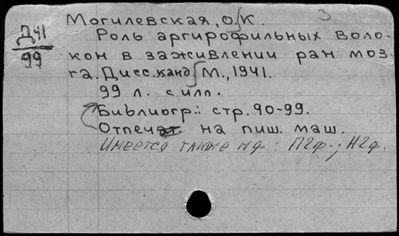 Могилевская, О.К.
3
Д41
99
Роль аргирофильных воло-
кон в заживлении ран моз-
га. Дисс. канд. М., 1941.
99 л. с илл.
Библиогр.: стр. 90-99.
Отпечат на пиш. маш.
Имеется также мф: П2ф.; Н2ф.